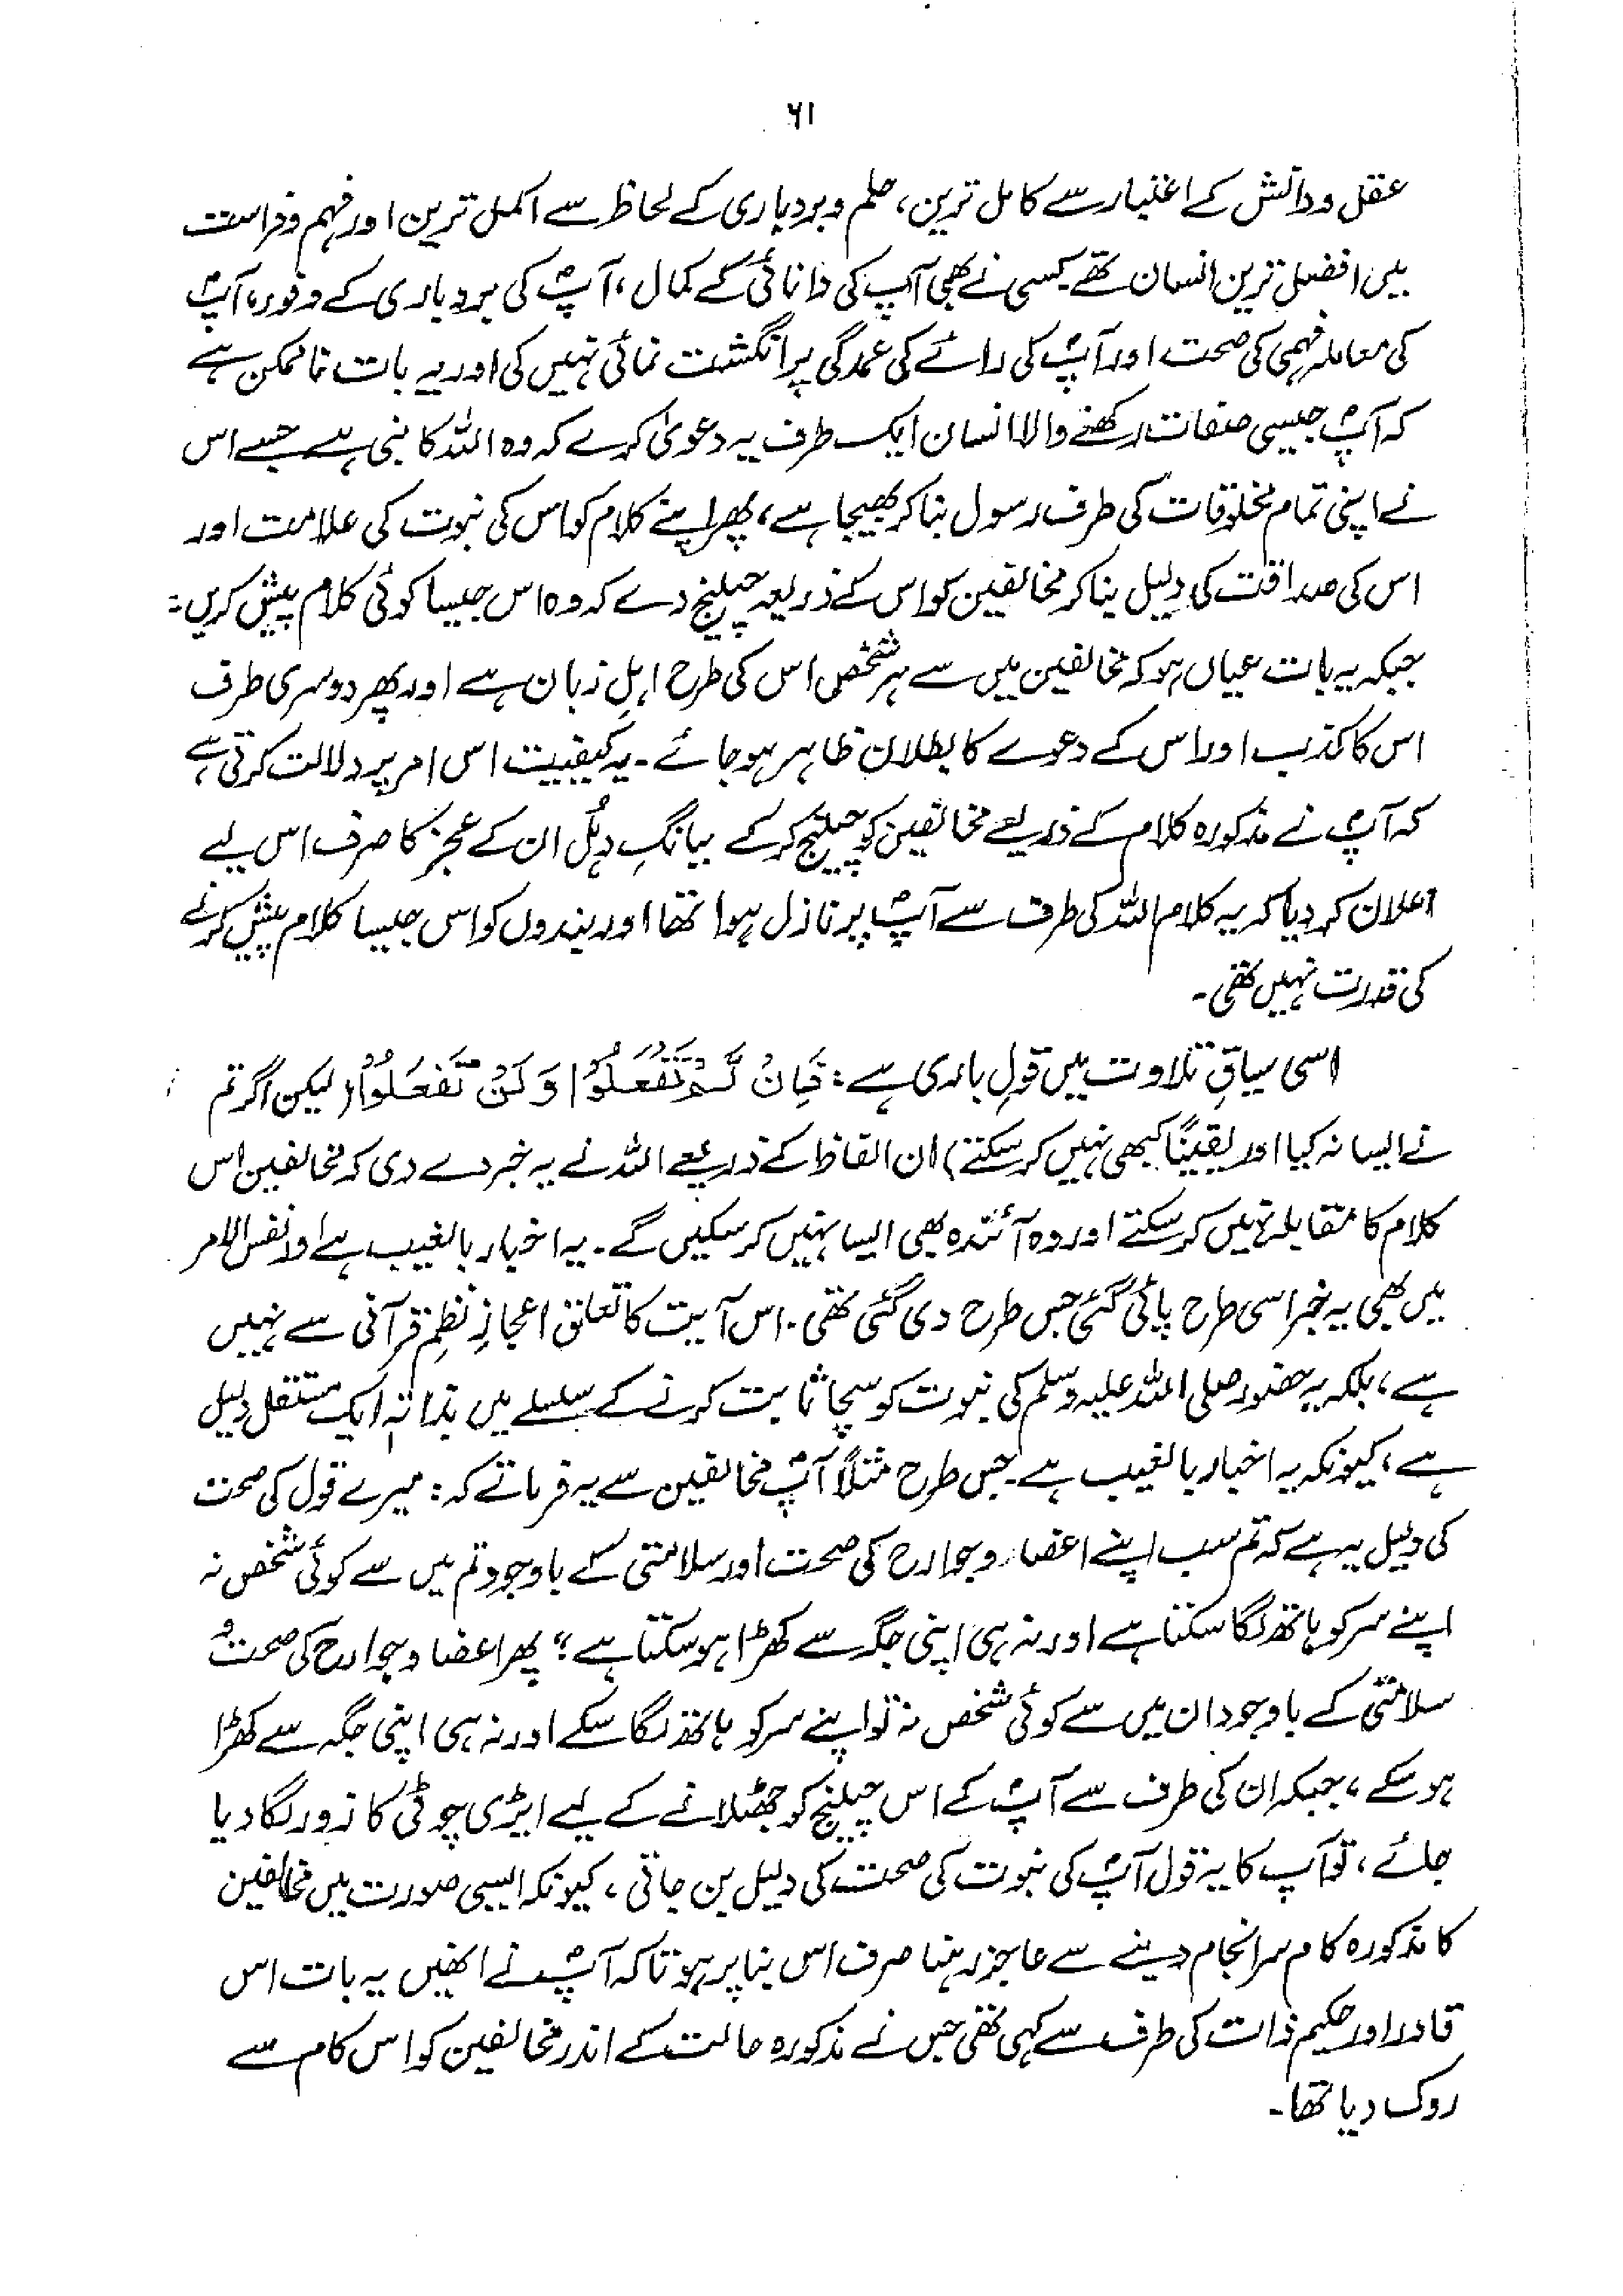 ۶۱
عقل و دانش کے اعتبار سے کامل ترین، حلم و بردباری کے لحاظ سے اکمل ترین اور فہم و فراست
میں افضل ترین انسان تھے۔ کسی نے بھی آپ کی دانائی کے کمال، آپؐ کی بردباری کے وفور، آپؐ
کی معاملہ فہمی کی صحت اور آپؐ کی رائے کی عمدگی پر انگشت نمائی نہیں کی اور یہ بات ناممکن ہے
کہ آپؐ جیسی صفات رکھنے والا انسان ایک طرف یہ دعویٰ کرے کہ وہ اللہ کا نبی ہے جسے اس
نے اپنی تمام مخلوقات کی طرف رسول بنا کر بھیجا ہے، پھر اپنے کلام کو اس کی نبوت کی علامت اور
اس کی صداقت کی دلیل بنا کر مخالفین کو اس کے ذریعہ چیلنج دے کہ وہ اس جیسا کوئی کلام پیش کریں:
جبکہ یہ بات عیاں ہو کہ مخالفین میں سے ہر شخص اس کی طرح اہلِ زبان ہے اور پھر دوسری طرف
اس کا کذب اور اس کے دعوے کا بطلان ظاہر ہو جائے۔ یہ کیفیت اس امر پر دلالت کرتی ہے
کہ آپؐ نے مذکورہ کلام کے ذریعے مخالفین کو چیلنج کر کے ببانگِ دہُل ان کے عجز کا صرف اس لیے
اعلان کر دیا کہ یہ کلام اللہ کی طرف سے آپؐ پر نازل ہوا تھا اور بندوں کو اس جیسا کلام پیش کرنے
کی قدرت نہیں تھی۔
اسی سیاقِ تلاوت میں قولِ باری ہے: فَاِنْ لَّمْ تَفْعَلُوْا وَلَنْ تَفْعَلُوْا (لیکن اگر تم
نے ایسا نہ کیا اور یقیناً کبھی نہیں کر سکتے) ان الفاظ کے ذریعے اللہ نے یہ خبر دے دی کہ مخالفین اس
کلام کا مقابلہ نہیں کر سکتے اور وہ آئندہ بھی ایسا نہیں کر سکیں گے۔ یہ اخبار بالغیب ہے اور نفس الامر
میں بھی یہ خبر اسی طرح پائی گئی جس طرح دی گئی تھی۔ اس آیت کا تعلق اعجازِ نظمِ قرآنی سے نہیں
ہے، بلکہ یہ حضور صلی اللہ علیہ وسلم کی نبوت کو سچا ثابت کرنے کے سلسلے میں بذاتہٖ ایک مستقل دلیل
ہے، کیونکہ یہ اخبار بالغیب ہے۔ جس طرح مثلاً آپؐ مخالفین سے یہ فرماتے کہ: میرے قول کی صحت
کی دلیل یہ ہے کہ تم سب اپنے اعضاء و جوارح کی صحت اور سلامتی کے باوجود تم میں سے کوئی شخص نہ
اپنے سر کو ہاتھ لگا سکتا ہے اور نہ ہی اپنی جگہ سے کھڑا ہو سکتا ہے؛" پھر اعضا و جوارح کی صحت و
سلامتی کے باوجود ان میں سے کوئی شخص نہ تو اپنے سر کو ہاتھ لگا سکے اور نہ ہی اپنی جگہ سے کھڑا
ہو سکے، جبکہ ان کی طرف سے آپؐ کے اس چیلنج کو جھٹلانے کے لیے ایڑی چوٹی کا زور لگا دیا
جائے، تو آپ کا یہ قول آپؐ کی نبوت کی صحت کی دلیل بن جاتی، کیونکہ ایسی صورت میں مخالفین
کا مذکورہ کام سرانجام دینے سے عاجز رہنا صرف اس بنا پر ہوتا کہ آپؐ نے انھیں یہ بات اس
قادر اور حکیم ذات کی طرف سے کہی تھی جس نے مذکورہ حالت کے اندر مخالفین کو اس کام سے
روک دیا تھا۔